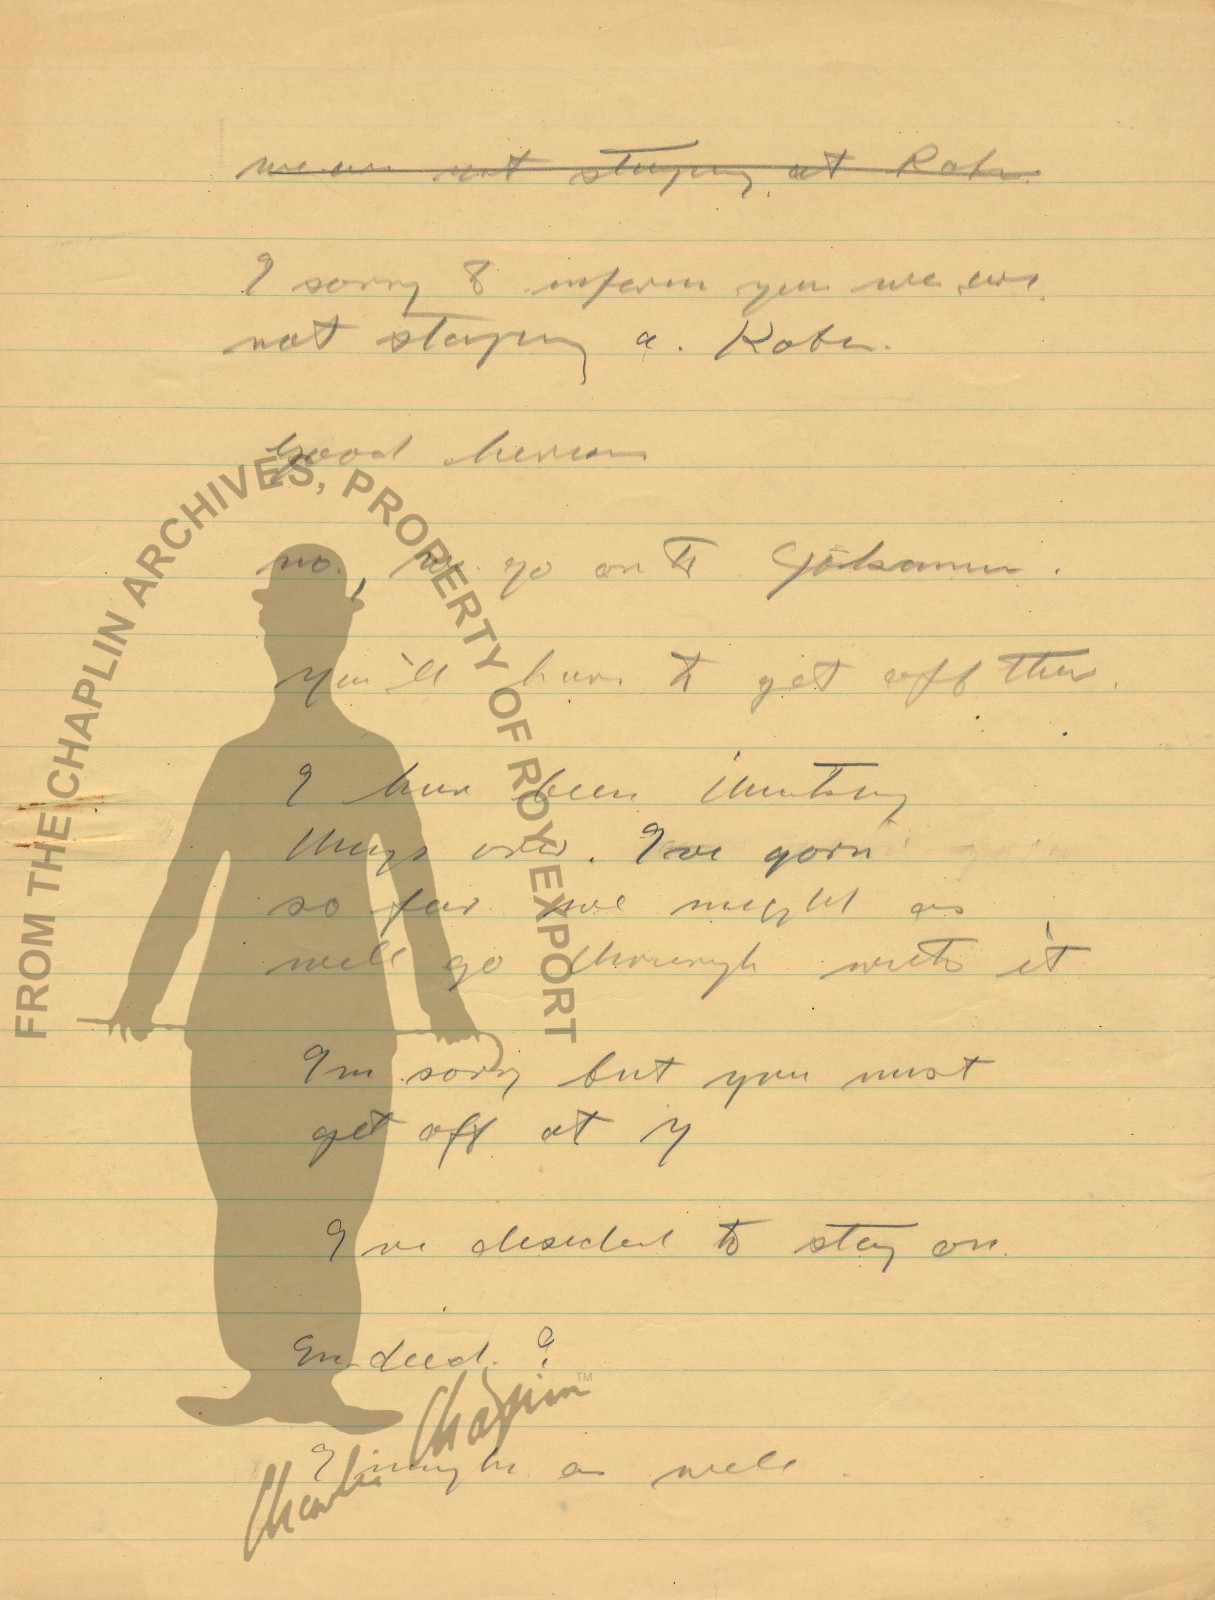 we are not staying at Kobe.
I sorry to inform you we are
not staying a. Kobe.
good heavens
no, we go on to Yokohama.
you'll have to get off there.
I have been thinking
things over. I've gorn
so far we might as
well go through with it
I'm sorry but you must
get off at Y
I've desided to stay on.
Indeed. ?
I might as well.
FROM THE CHAPLIN ARCHIVES, PROPERTY OF ROY EXPORT
Charlie Chaplin™